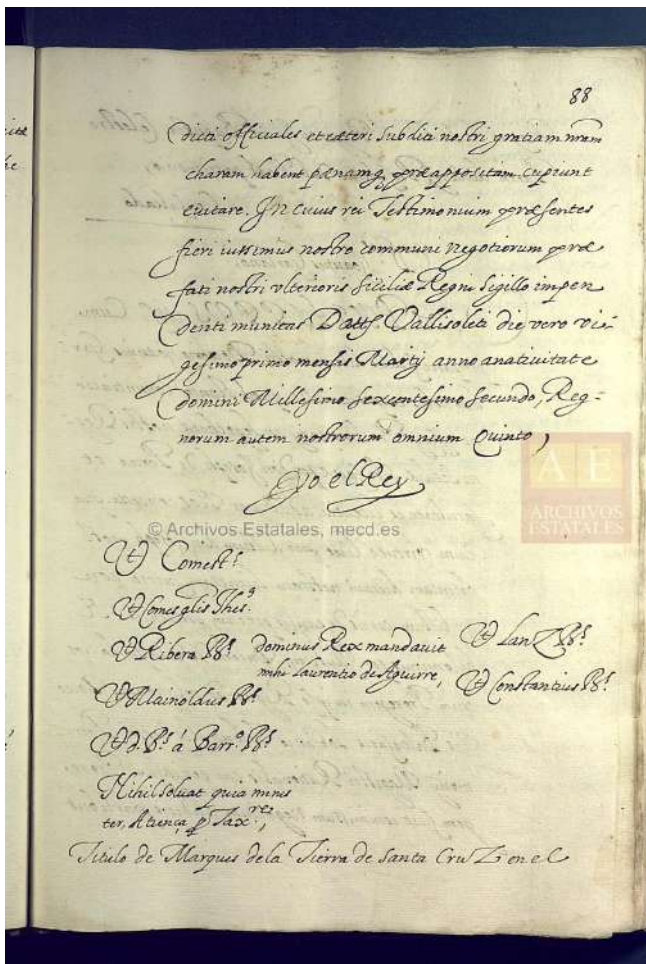 88
dicti officiales et cæteri subditi nostri gratiam nram
charam habent pœnamq præappositam cupiunt
euitare. In cuius rei Testimonium præsentes
fieri iussimus nostro communi negotiorum præ
fati nostri vlterioris siciliæ Regni sigillo impen
denti munitas Datts Vallisoleti die vero vi-
gesimo primo mensis Martij anno anatiuitate
Domini Millesimo sexcentesimo secundo, Reg-
norum autem nostrorum omnium Quinto,
Yo el Rey
© Archivos Estatales, mecd.es
AE
ARCHIVOS
ESTATALES
Vt Comes
Vt Comes glis Thes.
Vt Ribera Rs. dominus Rex mandauit Vt Lanz Rs.
mihi Laurentio de Aguirre, Vt Constantius Rs.
Vt Mainoldus Rs.
Vt d. á Barr.o Rs.
Nihil soluat quia minis
ter, Atiença p Tax.re,
Titulo de Marques dela Tierra de Santa Cruz en el